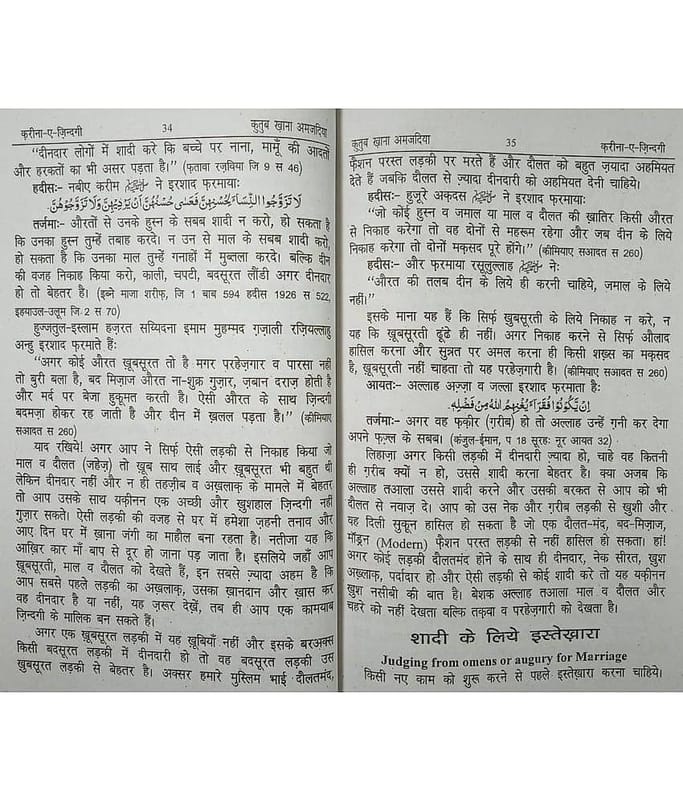 क़रीना-ए-ज़िन्दगी 34 कुतुब ख़ाना अमजदिया
“दीनदार लोगों में शादी करे कि बच्चे पर नाना, मामूँ की आदतों
और हरकतों का भी असर पड़ता है।” (फ़तावा रज़विया जि 9 स 46)
हदीसः- नबीए करीम ﷺ ने इरशाद फ़रमायाः
لَا تَزَوَّجُوا النِّسَاءَ لِحُسْنِهِنَّ فَعَسٰى حُسْنُهُنَّ اَنْ يُّرْدِيَهُنَّ وَلَا تَزَوَّجُوْهُنَّ
तर्जमाः- औरतों से उनके हुस्न के सबब शादी न करो, हो सकता है
कि उनका हुस्न तुम्हें तबाह करदे। न उन से माल के सबब शादी करो,
हो सकता है कि उनका माल तुम्हें गनाहों में मुब्तला करदे। बल्कि दीन
की वजह निकाह किया करो, काली, चपटी, बदसूरत लौंडी अगर दीनदार
हो तो बेहतर है। (इब्ने माजा शरीफ़, जि 1 बाब 594 हदीस 1926 स 522,
इहयाउल-उलूम जिः 2 स 70)
हुज्जतुल-इस्लाम हज़रत सय्यिदना इमाम मुहम्मद ग़ज़ाली रज़ियल्लाहु
अन्हु इरशाद फ़रमाते हैंः
“अगर कोई औरत ख़ूबसूरत तो है मगर परहेज़गार व पारसा नहीं
तो बुरी बला है, बद मिज़ाज औरत ना-शुक्र गुज़ार, ज़बान दराज़ होती है
और मर्द पर बेजा हुकूमत करती है। ऐसी औरत के साथ ज़िन्दगी
बदमज़ा होकर रह जाती है और दीन में ख़लल पड़ता है।” (कीमियाए
सआदत स 260)
याद रखिये! अगर आप ने सिर्फ़ ऐसी लड़की से निकाह किया जो
माल व दौलत (जहेज़) तो ख़ूब साथ लाई और ख़ूबसूरत भी बहुत थी
लेकिन दीनदार नहीं और न ही तहज़ीब व अख़लाक़ के मामले में बेहतर
तो आप उसके साथ यक़ीनन एक अच्छी और ख़ुशहाल ज़िन्दगी नहीं
गुज़ार सकते। ऐसी लड़की की वजह से घर में हमेशा ज़हनी तनाव और
आए दिन घर में ख़ाना जंगी का माहौल बना रहता है। नतीजा यह कि
आख़िर कार माँ बाप से दूर हो जाना पड़ जाता है। इसलिये जहाँ आप
ख़ूबसूरती, माल व दौलत को देखते हैं, इन सबसे ज़्यादा अहम है कि
आप सबसे पहले लड़की का अख़लाक़, उसका ख़ानदान और ख़ास कर
वह दीनदार है या नहीं, यह ज़रूर देखें, तब ही आप एक कामयाब
ज़िन्दगी के मालिक बन सकते हैं।
अगर एक ख़ूबसूरत लड़की में यह ख़ूबियाँ नहीं और इसके बरअक्स
किसी बदसूरत लड़की में दीनदारी हो तो वह बदसूरत लड़की उस
ख़ुबसूरत लड़की से बेहतर है। अक्सर हमारे मुस्लिम भाई दौलतमंद,
कुतुब ख़ाना अमजदिया 35 क़रीना-ए-ज़िन्दगी
फ़ैशन परस्त लड़की पर मरते हैं और दौलत को बहुत ज़्यादा अहमियत
देते हैं जबकि दौलत से ज़्यादा दीनदारी को अहमियत देनी चाहिये।
हदीसः- हुजूरे अकदस ﷺ ने इरशाद फ़रमायाः
“जो कोई हुस्न व जमाल या माल व दौलत की ख़ातिर किसी औरत
से निकाह करेगा तो वह दोनों से महरूम रहेगा और जब दीन के लिये
निकाह करेगा तो दोनों मकसद पूरे होंगे।” (कीमियाए सआदत स 260)
हदीसः- और फरमाया रसूलुल्लाह ﷺ नेः
“औरत की तलब दीन के लिये ही करनी चाहिये, जमाल के लिये
नहीं।”
इसके माना यह हैं कि सिर्फ़ ख़ुबसूरती के लिये निकाह न करे, न
यह कि ख़ूबसूरती ढूंढे ही नहीं। अगर निकाह करने से सिर्फ़ औलाद
हासिल करना और सुन्नत पर अमल करना ही किसी शख़्स का मकसद
है, ख़ूबसूरती नहीं चाहता तो यह परहेज़गारी है। (कीमियाए सआदत स 260)
आयतः- अल्लाह अज़्ज़ा व जल्ला इरशाद फ़रमाता हैः
اِنْ يَّكُوْنُوْا فُقَرَآءَ يُغْنِهِمُ اللهُ مِنْ فَضْلِهٖ.
तर्जमाः- अगर वह फ़क़ीर (ग़रीब) हो तो अल्लाह उन्हें ग़नी कर देगा
अपने फ़ज़्ल के सबब। (कंजुल-ईमान, प 18 सूरहः नूर आयत 32)
लिहाज़ा अगर किसी लड़की में दीनदारी ज़्यादा हो, चाहे वह कितनी
ही ग़रीब क्यों न हो, उससे शादी करना बेहतर है। क्या अजब कि
अल्लाह तआला उससे शादी करने और उसकी बरकत से आप को भी
दौलत से नवाज़ दे। आप को उस नेक और ग़रीब लड़की से खुशी और
वह दिली सुकून हासिल हो सकता है जो एक दौलत-मंद, बद-मिज़ाज,
मॉड्रन (Modern) फ़ैशन परस्त लड़की से नहीं हासिल हो सकता। हां!
अगर कोई लड़की दौलतमंद होने के साथ ही दीनदार, नेक सीरत, ख़ुश
अख़्लाक़, पर्दादार हो और ऐसी लड़की से कोई शादी करे तो यह यक़ीनन
ख़ुश नसीबी की बात है। बेशक अल्लाह तआला माल व दौलत और
चहरे को नहीं देखता बल्कि तक़वा व परहेज़गारी को देखता है।
शादी के लिये इस्तेख़ारा
Judging from omens or augury for Marriage
किसी नए काम को शुरू करने से पहले इस्तेख़ारा करना चाहिये।